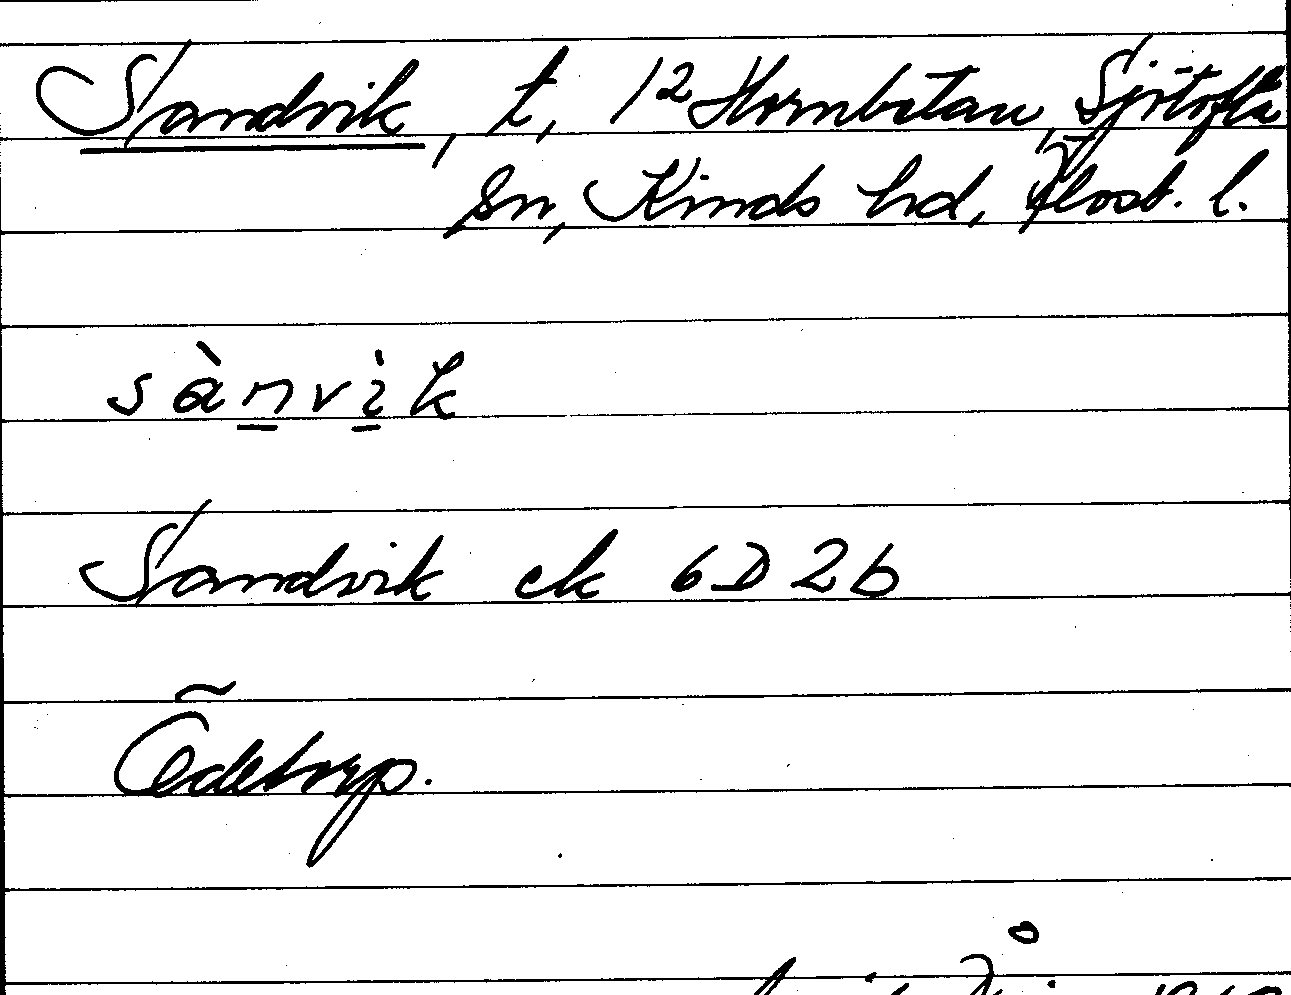 Sandvik, t, 1² Hornbetan, Sjötofta
sn, Kinds hd, Älvsb. l.
sànvìk
Sandvik ek 6D 2b
Ödetorp.